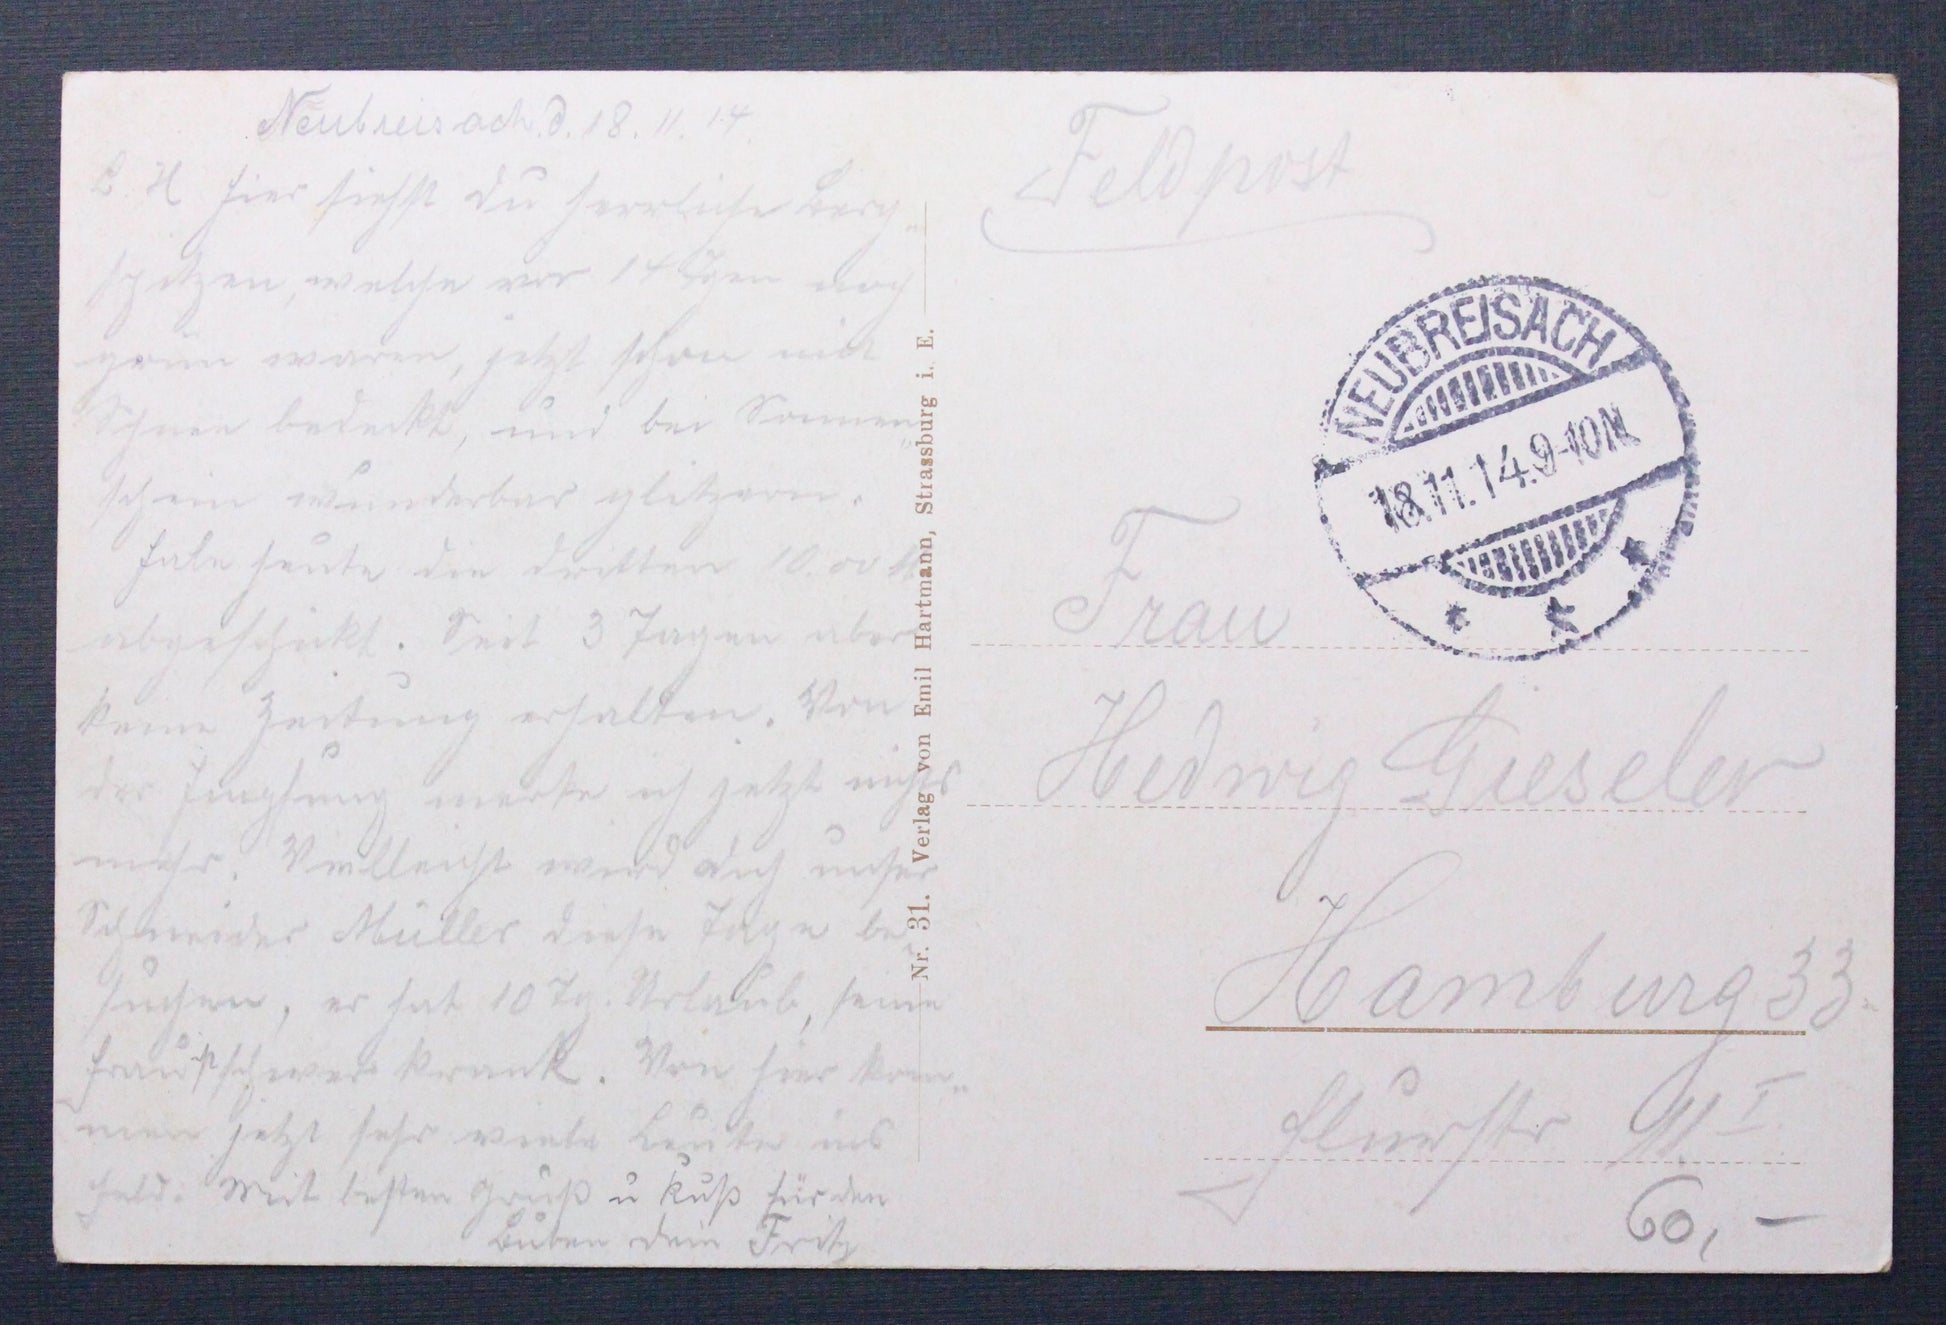 Neubreisach. d. 18. 11. 14
L. H. Hier siehst Du herrliche Berg-
spitzen, welche vor 14 Tgen noch
grün waren, jetzt schon mit
Schnee bedeckt, und bei Sonnen-
schein wunderbar glitzern.
Habe heute die dritten 10.00 M
abgeschickt. Seit 3 Tagen aber
keine Zeitung erhalten. Von
der Impfung merke ich jetzt nichts
mehr. Vielleicht wird dich unser
Schneider Müller diese Tage be-
suchen, er hat 10 Tg. Urlaub, seine
Frau ist schwer krank. Von hier kom-
men jetzt sehr viele Leute ins
Feld. Mit besten Gruß u Kuß für den
Buben dein Fritz
Nr. 31. Verlag von Emil Hartmann, Strassburg i. E.
Feldpost
NEUBREISACH
18.11.14.9-10N
Frau
Hedwig Gieseler
Hamburg 33
Flurstr I
60,-